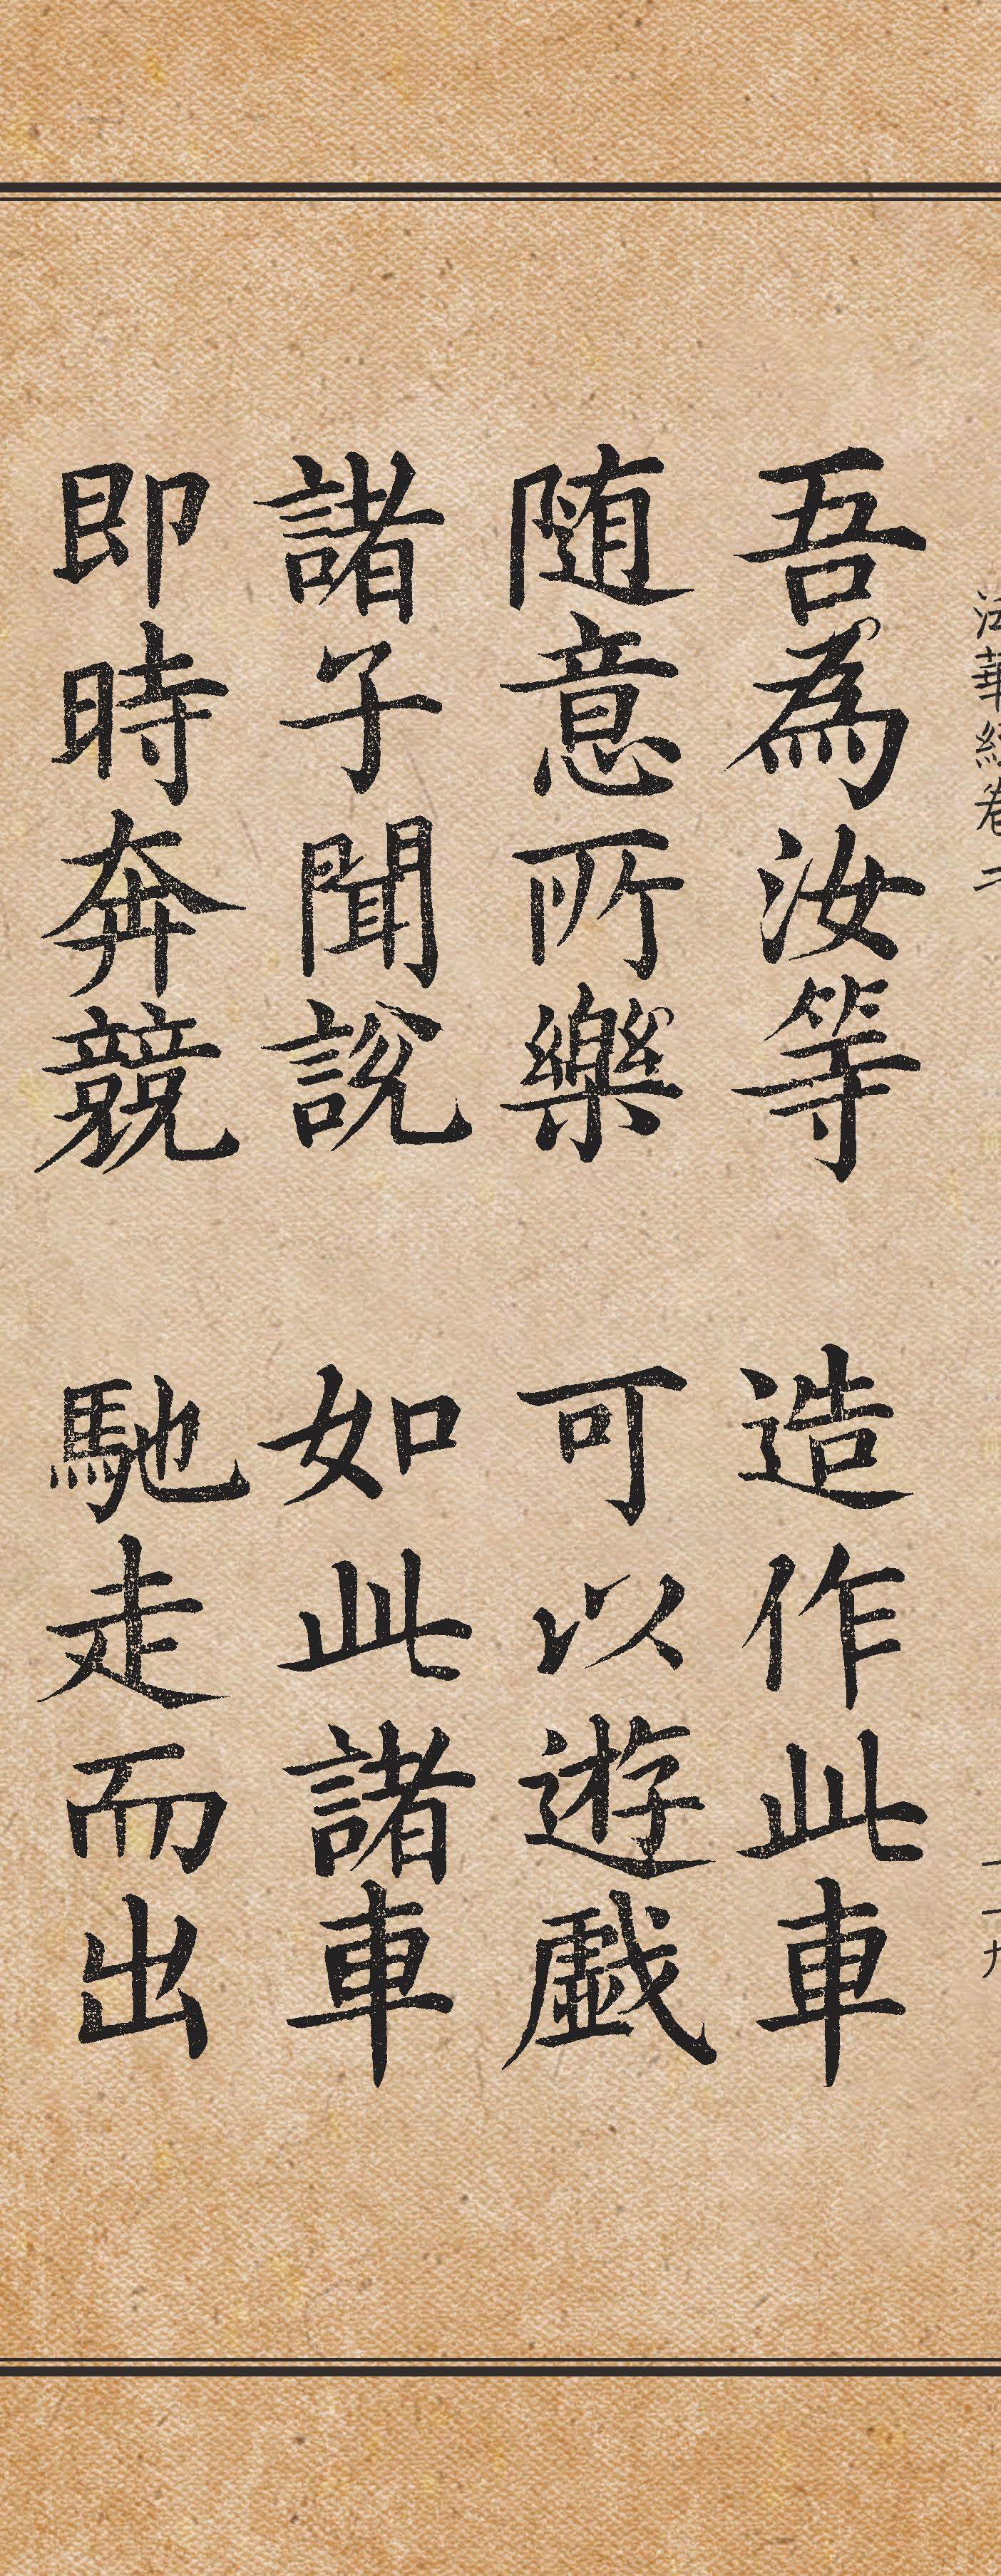 法華經卷二
吾為汝等 造作此車
随意所樂 可以遊戯
諸子聞說 如此諸車
即時奔競 馳走而出